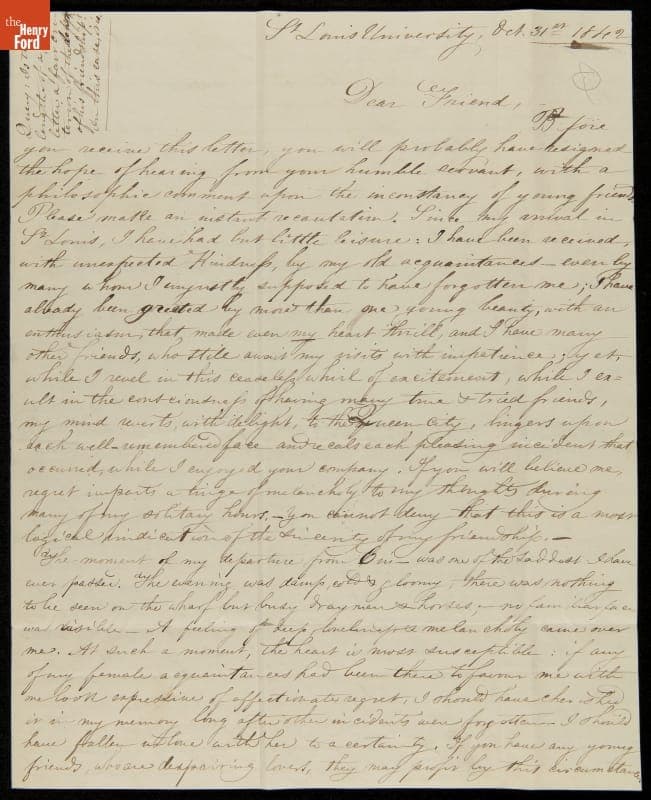 the
Henry
Ford
St Louis University, Oct. 31st 1842
Dear Friend,
Before
you receive this letter, you will probably have resigned
the hope of hearing from your humble servant, with a
philosophic comment upon the inconstancy of young friends.
Please make an instant recantation. Since my arrival in
St Louis, I have had but little leisure: I have been received,
with unexpected kindness, by my old acquaintances – even by
many whom I unjustly supposed to have forgotten me; I have
already been greeted by more than one young beauty, with an
enthusiasm, that made even my heart thrill, and I have many
other friends, who still await my visits with impatience; yet,
while I revel in this ceaseless whirl of excitement, while I ex-
ult in the consciousness of having many true & tried friends,
my mind reverts, with delight, to the Queen City, lingers upon
each well-remembered face and recals each pleasing incident that
occurred, while I enjoyed your company. If you will believe me,
regret imparts a tinge of melancholy to my thoughts during
many of my solitary hours. – you cannot deny that this is a most
logical indication of the sincerity of my friendship. –
The moment of my departure from Cin – was one of the saddest I have
ever passed. The evening was damp cold & gloomy, there was nothing
to be seen on the wharf but busy draymen & horses – no familiar face
was visible – A feeling of deep loneliness & melancholy came over
me. At such a moment, the heart is most susceptible: if any
of my female acquaintances had been there to favour me with
one look expressive of affectionate regret, I should have cherished
it in my memory long after other incidents were forgotten – I should
have fallen in love with her to a certainty. If you have any young
friends, who are despairing lovers, they may profit by this circumstance.